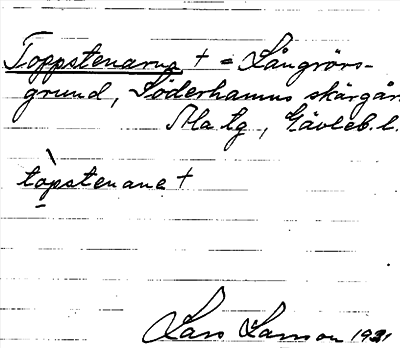 Toppstenarna † = Långrörs-
grund, Söderhamns skärgår
Ala tg, Gävleb. l.
tòpstenane †
Lars Larsson 1931